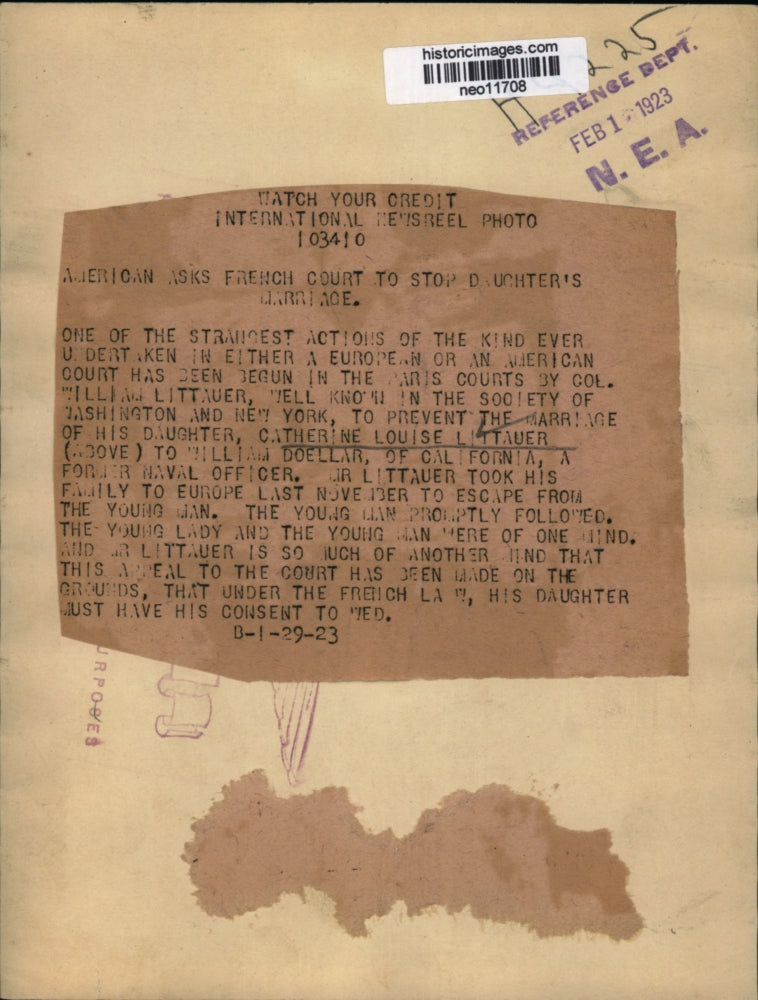 historicimages.com
neo11708
REFERENCE DEPT.
FEB 1 1923
N. E. A.
WATCH YOUR CREDIT
INTERNATIONAL NEWSREEL PHOTO
103410
AMERICAN ASKS FRENCH COURT TO STOP DAUGHTER'S
MARRIAGE.
ONE OF THE STRANGEST ACTIONS OF THE KIND EVER
UNDERTAKEN IN EITHER A EUROPEAN OR AN AMERICAN
COURT HAS BEEN BEGUN IN THE PARIS COURTS BY COL.
WILLIAM LITTAUER, WELL KNOWN IN THE SOCIETY OF
WASHINGTON AND NEW YORK, TO PREVENT THE MARRIAGE
OF HIS DAUGHTER, CATHERINE LOUISE LITTAUER
(ABOVE) TO WILLIAM DOELLAR, OF CALIFORNIA, A
FORMER NAVAL OFFICER. MR LITTAUER TOOK HIS
FAMILY TO EUROPE LAST NOVEMBER TO ESCAPE FROM
THE YOUNG MAN. THE YOUNG MAN PROMPTLY FOLLOWED.
THE YOUNG LADY AND THE YOUNG MAN WERE OF ONE MIND.
AND MR LITTAUER IS SO MUCH OF ANOTHER MIND THAT
THIS APPEAL TO THE COURT HAS BEEN MADE ON THE
GROUNDS, THAT UNDER THE FRENCH LAW, HIS DAUGHTER
MUST HAVE HIS CONSENT TO WED.
B-1-29-23
URPOSES